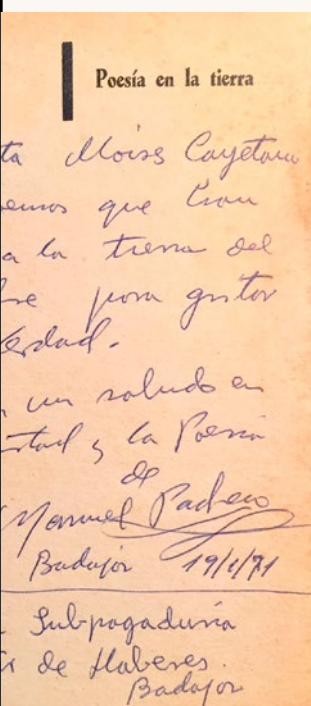 Poesía en la tierra
ta Moises Cayetano
emas que
a la tierra del
para gritar
erdad.
un saludo en
stad y la Poesia
de
Manuel Pacheco
Badajoz 19/1/71
Subpagaduria
de Haberes.
Badajoz